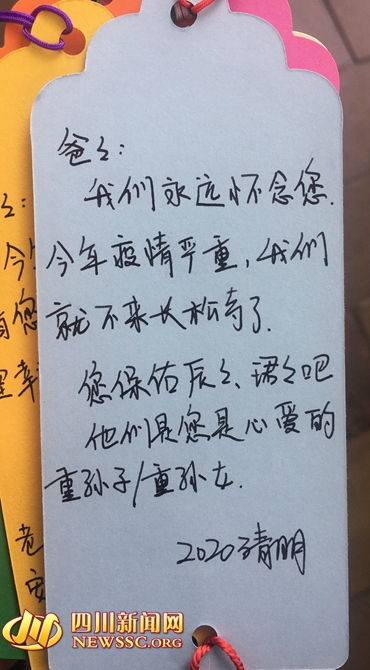 爸々:
我们永远怀念您.
今年疫情严重,我们
就不来长松寺了.
您保佑辰々、珺々吧
他们是您是心爱的
重孙子/重孙女.
2020清明
々:
今
您
幸
老
四川新闻网
NEWSSC.ORG